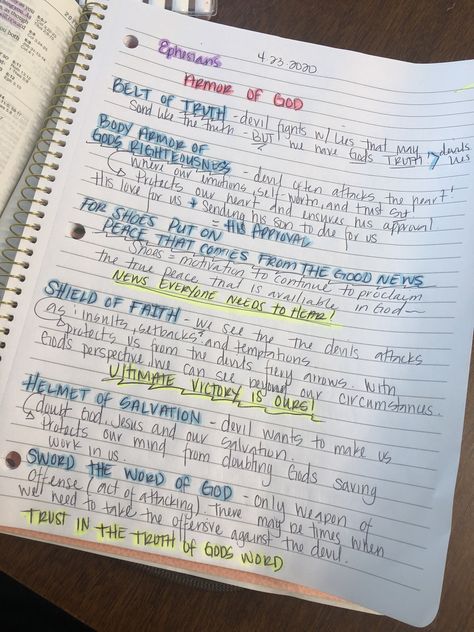 Ephesians
4.23.2020
ARMOR OF GOD
BELT OF TRUTH - devil fights w/ lies that may
Sond like the truth - BUT we have Gods TRUTH > devils lies
BODY ARMOR OF
GODS RIGHTEOUSNESS - devil often attacks the heart!
Where our emotions, self worth, and trust sit
Protects our heart and ensures his approval
His love for us + sending his son to die for us.
= HIS APPROVAL
FOR SHOES PUT ON
PEACE THAT COMES FROM THE GOOD NEWS
Shoes = motivation to continue to proclaim
the true peace that is availiable in God~
NEWS EVERYONE NEEDS TO HEAR!
SHIELD OF FAITH - we see the the devils attacks
as: insults, setbacks, and temptations
protects us from the devils fiery arrows. With
Gods perspective, we can see beyond our circumstances.
ULTIMATE VICTORY IS OURS!
HELMET OF SALVATION - devil wants to make us
doubt God, Jesus and our salvation.
Protects our mind from doubting Gods saving
work in us.
SWORD THE WORD OF GOD - Only weapon of
offense (act of attacking) There may be times when
we need to take the offensive against the devil.
TRUST IN THE TRUTH OF GODS WORD